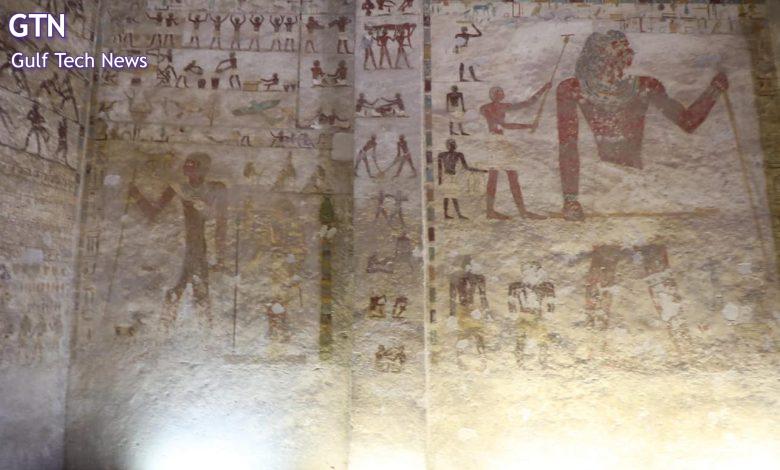 GTN
Gulf Tech News